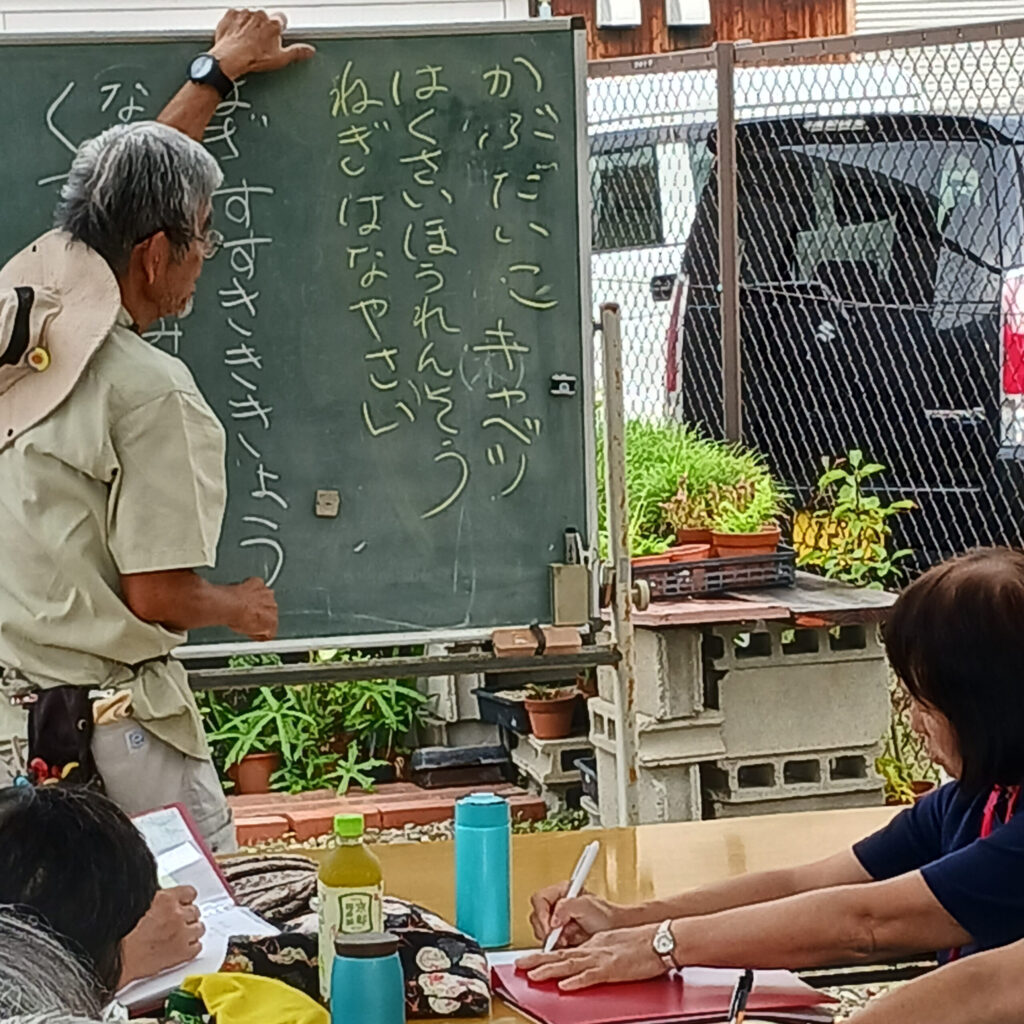 かぶ だいこ キャベツ
はくさい ほうれんそう
ねぎ はなやさい
ぎ すすき ききょう
な
く